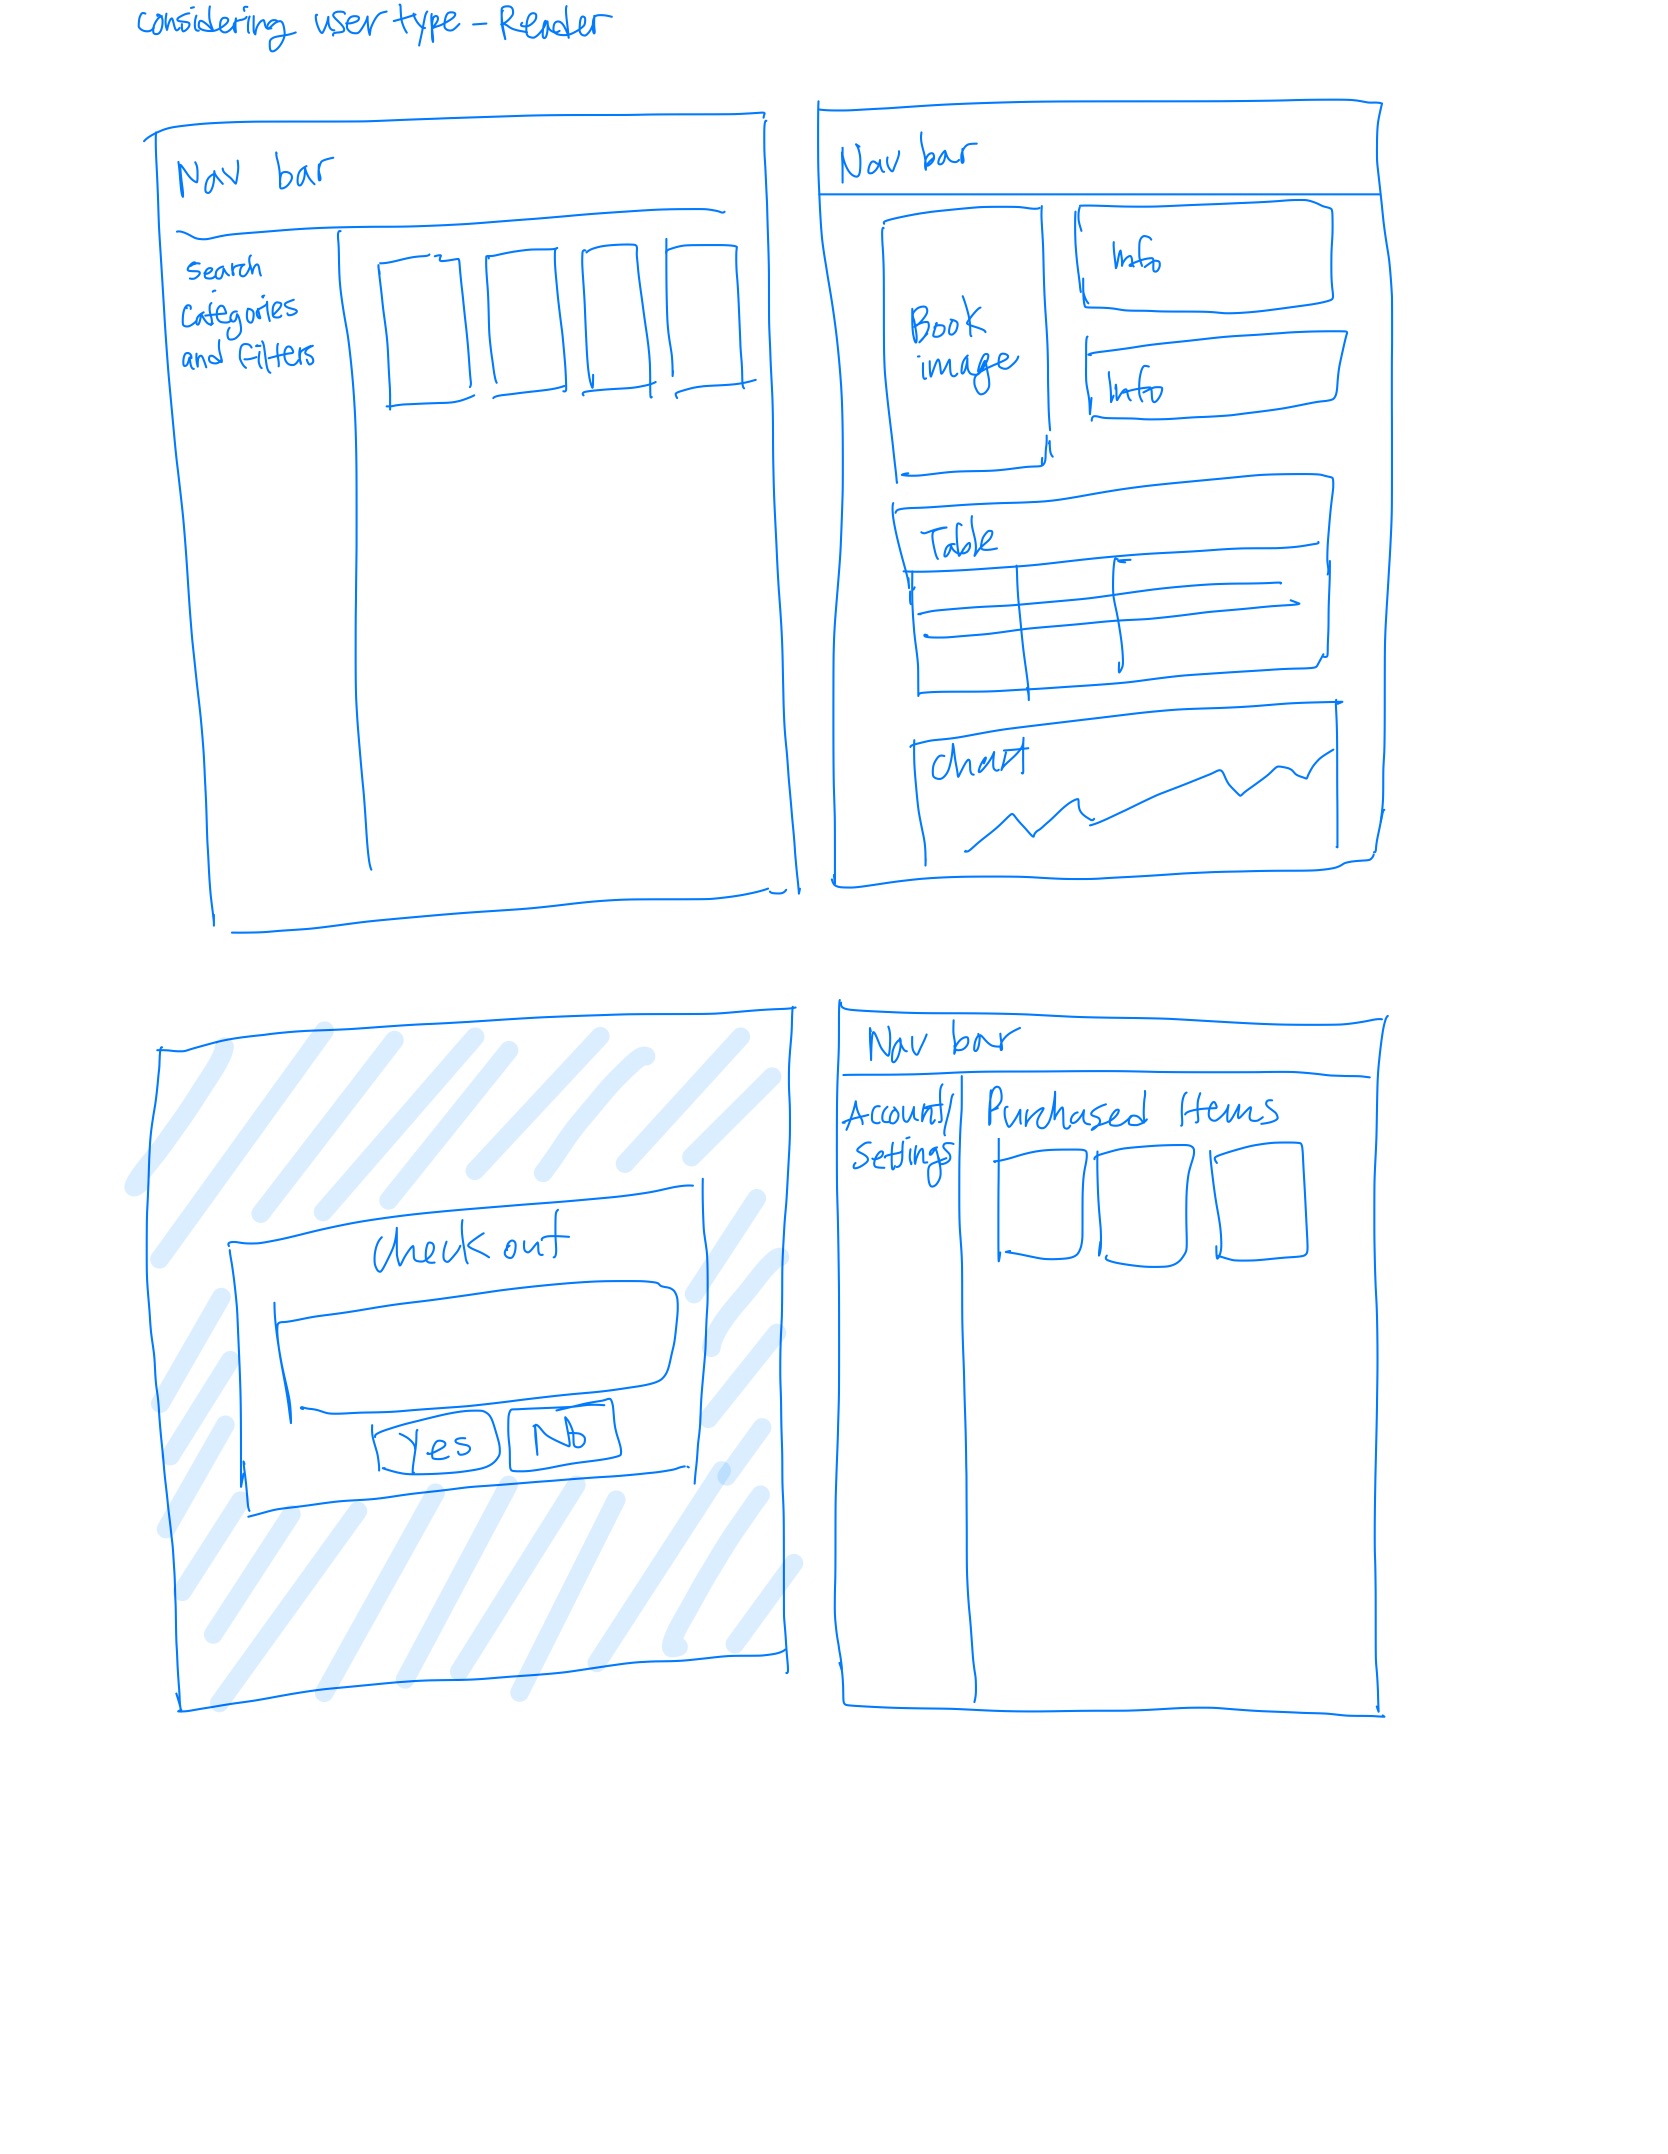 Considering user type - Reader
Nav bar
search
categories
and filters
Nav bar
Book
image
Info
Info
Table
Chart
Check out
Yes
No
Nav bar
Account/
Settings
Purchased Items